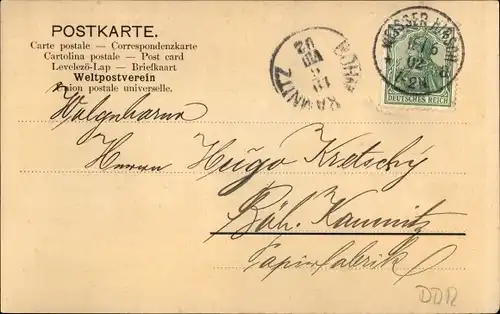 POSTKARTE.
Carte postale — Correspondenzkarte
Cartolina postale — Post card
Levelező-Lap — Briefkaart
Weltpostverein
Union postale universelle.
WEISSER HIRSCH
02
DEUTSCHES REICH
Herrn Hugo Kretschy
Böh. Kamnitz
Papierfabrik
DDR